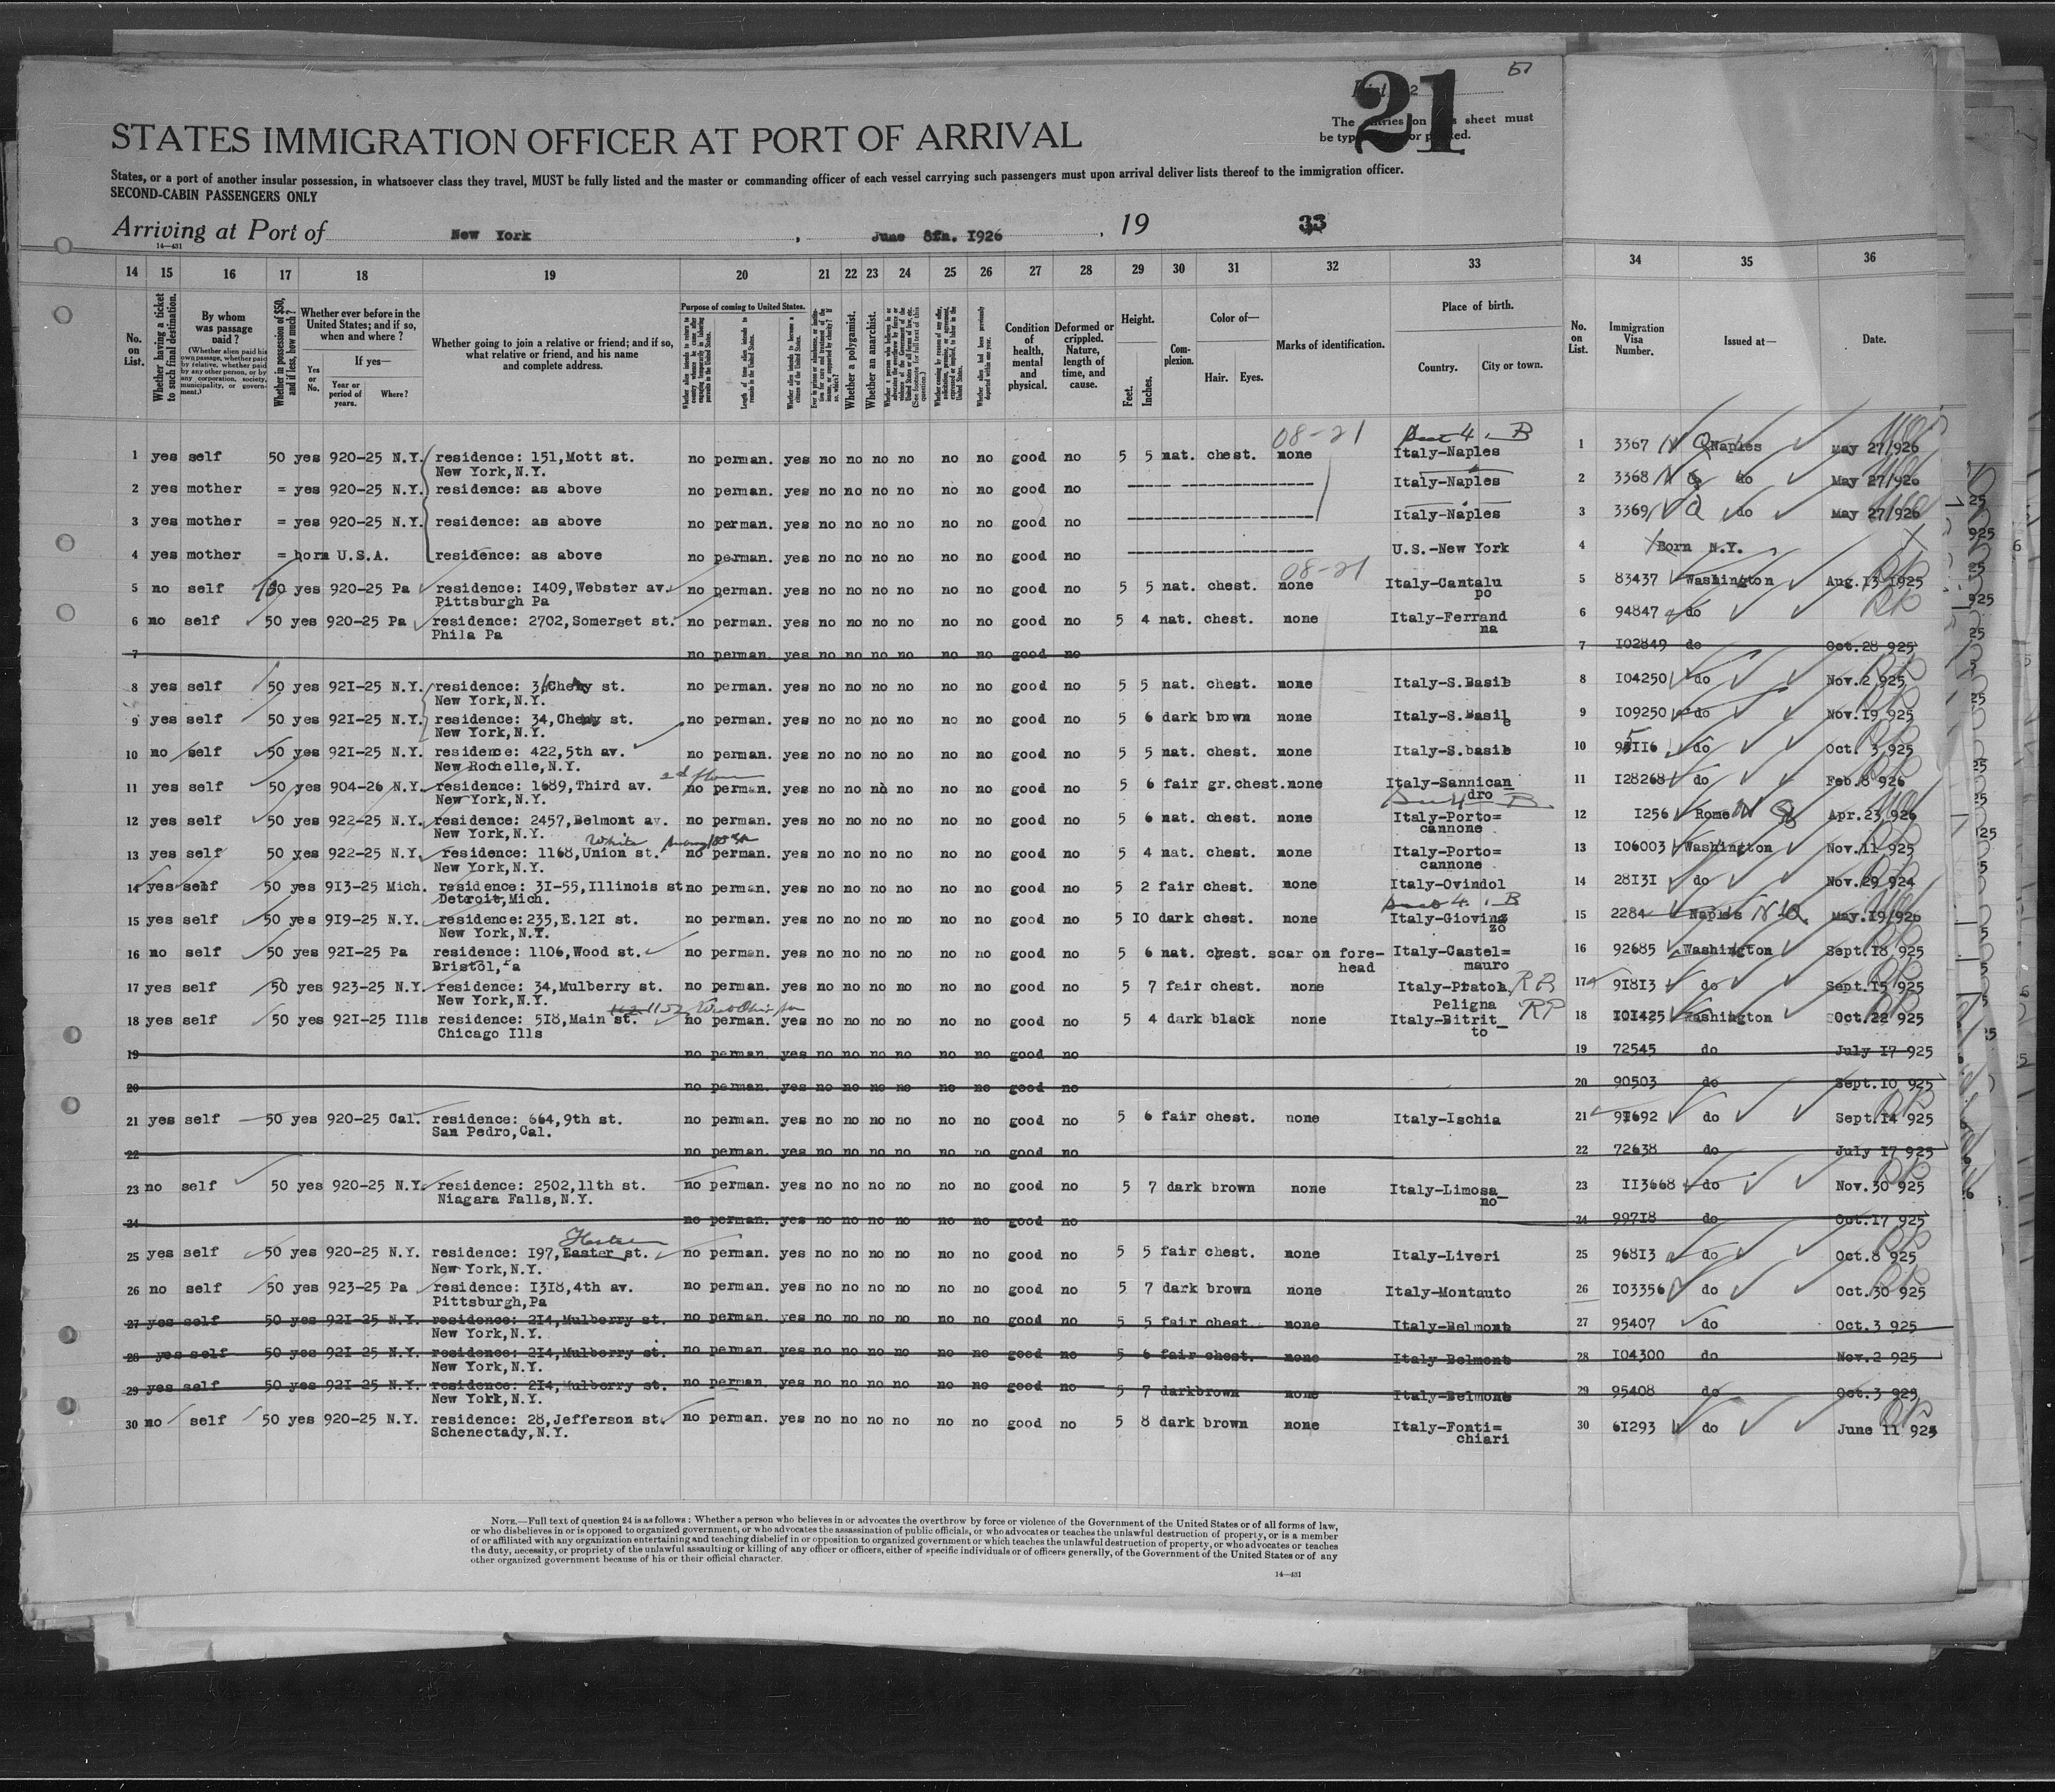 51
21
The entries on this sheet must
be typewritten or printed.
STATES IMMIGRATION OFFICER AT PORT OF ARRIVAL
States, or a port of another insular possession, in whatsoever class they travel, MUST be fully listed and the master or commanding officer of each vessel carrying such passengers must upon arrival deliver lists thereof to the immigration officer.
SECOND-CABIN PASSENGERS ONLY
Arriving at Port of New York, June 8th. 1926, 19 33
14—431
14 15 16 17 18 19 20 21 22 23 24 25 26 27 28 29 30 31 32 33 34 35 36
No. on List.
Whether having a ticket to such final destination.
By whom was passage paid?
(Whether alien paid his own passage, whether paid by relative, whether paid by any other person, or by any corporation, society, municipality, or government.)
Whether in possession of $50, and if less, how much?
Whether ever before in the United States; and if so, when and where?
If yes—
Yes or No.
Year or period of years.
Where?
Whether going to join a relative or friend; and if so, what relative or friend, and his name and complete address.
Purpose of coming to United States.
Length of time alien intends to remain in the United States.
Whether a polygamist.
Whether an anarchist.
Condition of health, mental and physical.
Deformed or crippled. Nature, length of time, and cause.
Height.
Feet. Inches.
Complexion.
Color of—
Hair. Eyes.
Marks of identification.
Place of birth.
Country. City or town.
No. on List.
Immigration Visa Number.
Issued at—
Date.
08-21 B
1 yes self 50 yes 920-25 N.Y. residence: 151,Mott st. no perman. yes no no no no no no good no 5 5 nat. chest. none Italy-Naples 1 3367 Naples May 27/926
New York,N.Y.
2 yes mother = yes 920-25 N.Y. residence: as above no perman. yes no no no no no no good no Italy-Naples 2 3368 do May 27/926
3 yes mother = yes 920-25 N.Y. residence: as above no perman. yes no no no no no no good no Italy-Naples 3 3369 do May 27/926
4 yes mother = born U.S.A. residence: as above no perman. yes no no no no no no good no U.S.-New York 4 Born N.Y.
08-21
5 no self 50 yes 920-25 Pa residence: 1409,Webster av. no perman. yes no no no no no no good no 5 5 nat. chest. none Italy-Cantalu 5 83437 Washington Aug.13 1925
Pittsburgh Pa po
6 no self 50 yes 920-25 Pa residence: 2702,Somerset st. no perman. yes no no no no no no good no 5 4 nat. chest. none Italy-Ferrand 6 94847 do
Phila Pa na
7 no perman. yes no no no no no no good no 7 102849 do Oct.28 925
8 yes self 50 yes 921-25 N.Y. residence: 34 Cherry st. no perman. yes no no no no no no good no 5 5 nat. chest. none Italy-S.Basile 8 104250 do Nov.2 925
New York,N.Y.
9 yes self 50 yes 921-25 N.Y. residence: 34,Cherry st. no perman. yes no no no no no no good no 5 6 dark brown none Italy-S.Basile 9 109250 do Nov.19 925
New York,N.Y.
10 no self 50 yes 921-25 N.Y. residence: 422,5th av. no perman. yes no no no no no no good no 5 5 nat. chest. none Italy-S.basile 10 95116 do Oct. 3 925
New Rochelle,N.Y.
2d floor
11 yes self 50 yes 904-26 N.Y. residence: 1689,Third av. no perman. yes no no no no no no good no 5 6 fair gr.chest.none Italy-Sannican 11 128268 do Feb.8 926
New York,N.Y. dro
B
12 yes self 50 yes 922-25 N.Y. residence: 2457,Belmont av. no perman. yes no no no no no no good no 5 6 nat. chest. none Italy-Porto= 12 1256 Rome Apr.23 926
New York,N.Y. cannone
White
13 yes self 50 yes 922-25 N.Y. residence: 1168,Union st. no perman. yes no no no no no no good no 5 4 nat. chest. none Italy-Porto= 13 106003 Washington Nov.11 925
New York,N.Y. cannone
14 yes self 50 yes 913-25 Mich. residence: 31-55,Illinois st no perman. yes no no no no no no good no 5 2 fair chest. none Italy-Ovindol 14 28131 do Nov.29 924
Detroit,Mich.
B
15 yes self 50 yes 919-25 N.Y. residence:235,E.121 st. no perman. yes no no no no no no good no 5 10 dark chest. none Italy-Giovinz 15 2284 Naples May.19/926
New York,N.Y. zo
16 no self 50 yes 921-25 Pa residence: 1106,Wood st. no perman. yes no no no no no no good no 5 6 nat. chest. scar on fore- Italy-Castel= 16 92685 Washington Sept.18 925
Bristol,Pa head mauro
17 yes self 50 yes 923-25 N.Y. residence: 34,Mulberry st. no perman. yes no no no no no no good no 5 7 fair chest. none Italy-Pratola 17 91813 do Sept.15 925
New York,N.Y. Peligna
18 yes self 50 yes 921-25 Ills residence: 518,Main st. no perman. yes no no no no no no good no 5 4 dark black none Italy-Bitrit_ 18 101425 Washington Oct.22 925
Chicago Ills to
19 no perman. yes no no no no no no good no 19 72545 do July 17 925
20 no perman. yes no no no no no no good no 20 90503 do Sept.10 925
21 yes self 50 yes 920-25 Cal. residence: 664,9th st. no perman. yes no no no no no no good no 5 6 fair chest. none Italy-Ischia 21 91692 do Sept.14 925
San Pedro,Cal.
22 no perman. yes no no no no no no good no 22 72638 do July 17 925
23 no self 50 yes 920-25 N.Y. residence: 2502,11th st. no perman. yes no no no no no no good no 5 7 dark brown none Italy-Limosa_ 23 113668 do Nov.30 925
Niagara Falls,N.Y. no
24 no perman. yes no no no no no no good no 24 99718 do Oct.17 925
Hester
25 yes self 50 yes 920-25 N.Y. residence: 197,Easter st. no perman. yes no no no no no no good no 5 5 fair chest. none Italy-Liveri 25 96813 do Oct.8 925
New York,N.Y.
26 no self 50 yes 923-25 Pa residence: 1318,4th av. no perman. yes no no no no no no good no 5 7 dark brown none Italy-Montauto 26 103356 do Oct.30 925
Pittsburgh,Pa
27 yes self 50 yes 921-25 N.Y. residence: 214,Mulberry st. no perman. yes no no no no no no good no 5 5 fair chest. none Italy-Belmont 27 95407 do Oct.3 925
New York,N.Y.
28 yes self 50 yes 921-25 N.Y. residence: 214,Mulberry st. no perman. yes no no no no no no good no 5 6 fair chest. none Italy-Belmont 28 104300 do Nov.2 925
New York,N.Y.
29 yes self 50 yes 921-25 N.Y. residence: 214,Mulberry st. no perman. yes no no no no no no good no 5 7 darkbrown none Italy-Belmont 29 95408 do Oct.3 925
New York,N.Y.
30 no self 50 yes 920-25 N.Y. residence: 28,Jefferson st. no perman. yes no no no no no no good no 5 8 dark brown none Italy-Fonti= 30 61293 do June 11 925
Schenectady,N.Y. chiari
NOTE.—Full text of question 24 is as follows: Whether a person who believes in or advocates the overthrow by force or violence of the Government of the United States or of all forms of law,
or who disbelieves in or is opposed to organized government, or who advocates the assassination of public officials, or who advocates or teaches the unlawful destruction of property, or is a member
of or affiliated with any organization entertaining and teaching disbelief in or opposition to organized government or which teaches the unlawful destruction of property, or who advocates or teaches
the duty, necessity, or propriety of the unlawful assaulting or killing of any officer or officers, either of specific individuals or of officers generally, of the Government of the United States or of any
other organized government because of his or their official character.
14—431